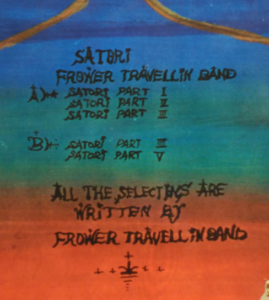 SATORI
FROWER TRAVELLIN BAND
A) SATORI PART I
SATORI PART II
SATORI PART III
B) SATORI PART III
SATORI PART V
ALL THE SELECTINS ARE
WRITTEN BY
FROWER TRAVELLIN BAND